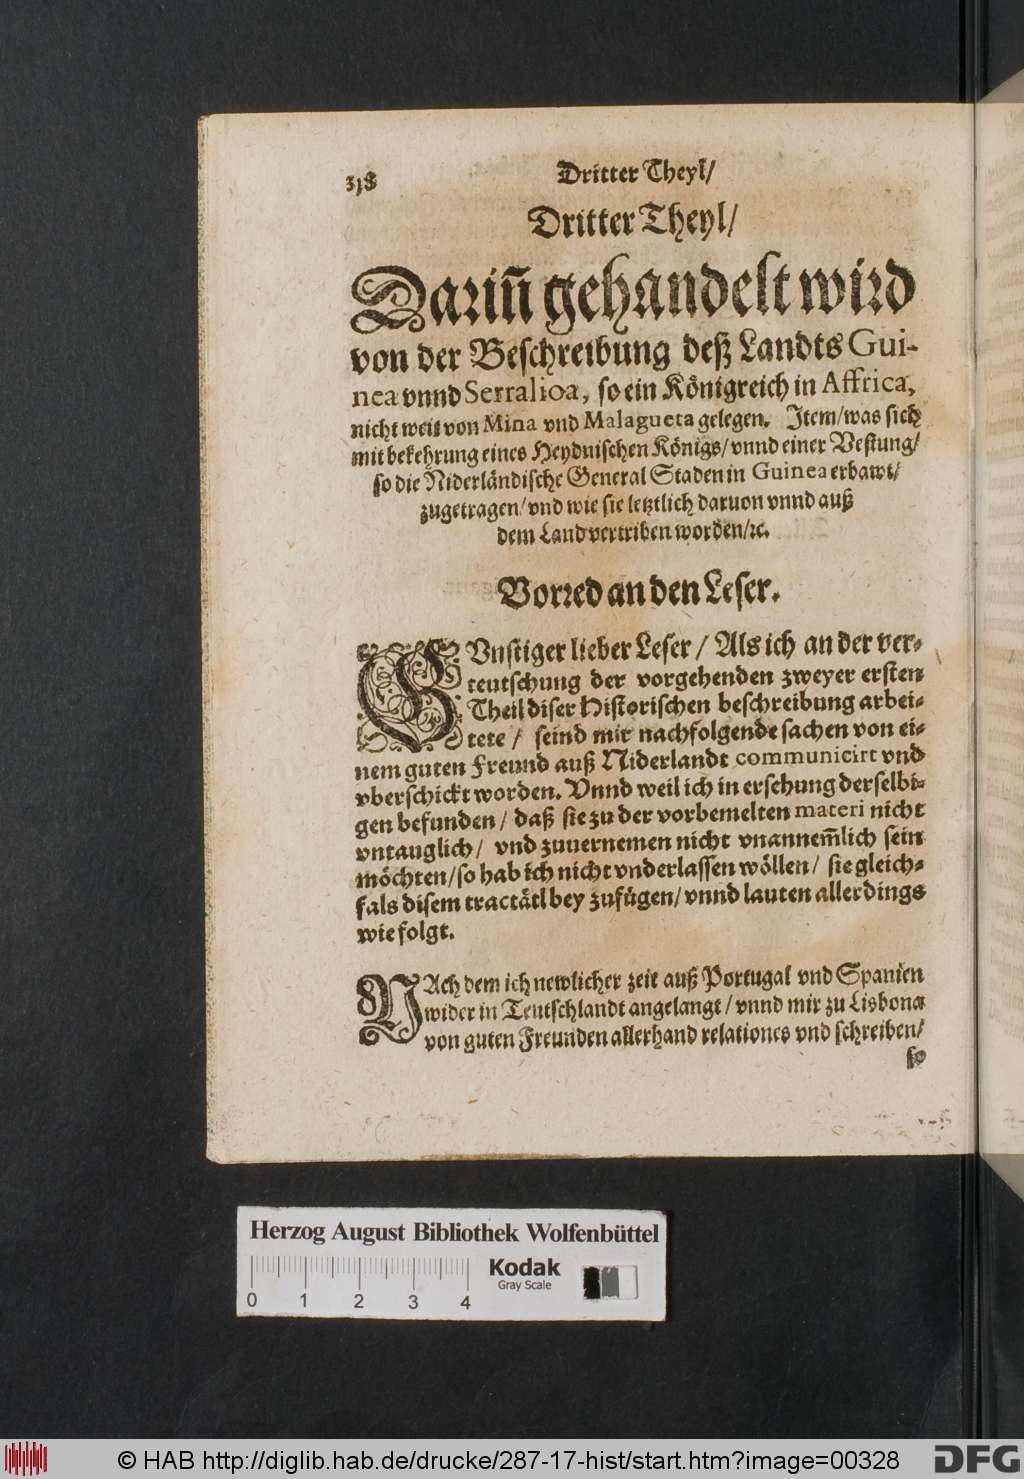 318
Dritter Theyl/
Dritter Theyl/
Dariñ gehandelt wird
von der Beschreibung deß Landts Gui-
nea vnnd Serralioa, so ein Königreich in Affrica,
nicht weit von Mina vnd Malagueta gelegen. Item/was sich
mit bekehrung eines Heydnischen Königs/vnnd einer Vestung/
so die Niderländische General Staden in Guinea erbawt/
zugetragen/vnd wie sie letztlich daruon vnnd auß
dem Land vertriben worden/ꝛc.
Vorred an den Leser.
GVnstiger lieber Leser / Als ich an der ver-
teutschung der vorgehenden zweyer ersten
Theil diser Historischen beschreibung arbei-
tete / seind mir nachfolgende sachen von ei-
nem guten Freund auß Niderlandt communicirt vnd
vberschickt worden. Vnnd weil ich in ersehung derselbi-
gen befunden / daß sie zu der vorbemelten materi nicht
vntauglich / vnd zuuernemen nicht vnannem̃lich sein
möchten/so hab ich nicht vnderlassen wöllen / sie gleich-
fals disem tractätl bey zufügen/vnnd lauten allerdings
wie folgt.
NAch dem ich newlicher zeit auß Portugal vnd Spanien
wider in Teutschlandt angelangt / vnnd mir zu Lisbona
von guten Freunden allerhand relationes vnd schreiben/
so
Herzog August Bibliothek Wolfenbüttel
Kodak
Gray Scale
0 1 2 3 4
© HAB http://diglib.hab.de/drucke/287-17-hist/start.htm?image=00328
DFG